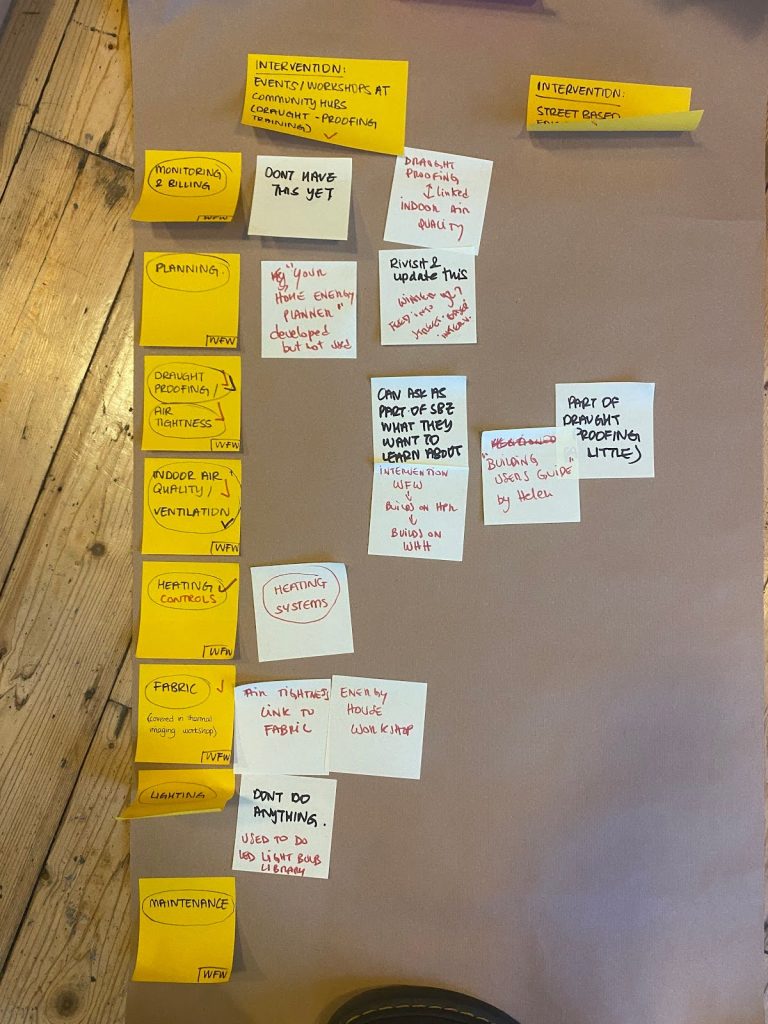 INTERVENTION:
EVENTS/WORKSHOPS AT
COMMUNITY HUBS
(DRAUGHT-PROOFING
TRAINING)
INTERVENTION:
STREET BASED
MONITORING
& BILLING
WFW
DONT HAVE
THIS YET
DRAUGHT
PROOFING
↕ linked
INDOOR AIR
QUALITY
PLANNING.
WFW
"YOUR
HOME ENERGY
PLANNER"
developed
but not used
Rivisit &
update this
DRAUGHT
PROOFING/
AIR
TIGHTNESS
WFW
CAN ASK AS
PART OF SBZ
WHAT THEY
WANT TO
LEARN ABOUT
PART OF
DRAUGHT
PROOFING
LITTLE)
INDOOR AIR
QUALITY/
VENTILATION
WFW
INTERVENTION
WFW
↓
BUILDS ON
↓
BUILDS ON
WHH
"BUILDING
USERS GUIDE"
by Helen
HEATING
CONTROLS
WFW
HEATING
SYSTEMS
FABRIC
(covered in thermal
imaging workshop)
WFW
AIR TIGHTNESS
LINK TO
FABRIC
ENERGY
HOUSE
WORKSHOP
LIGHTING
DONT DO
ANYTHING.
USED TO DO
LED LIGHT BULB
LIBRARY
MAINTENANCE
WFW